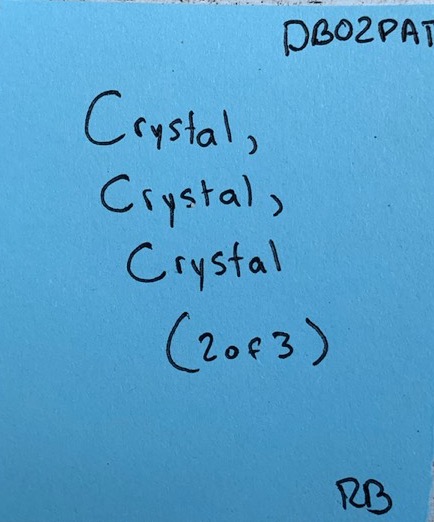 DB02PAT
Crystal,
Crystal,
Crystal
(2 of 3)
RB